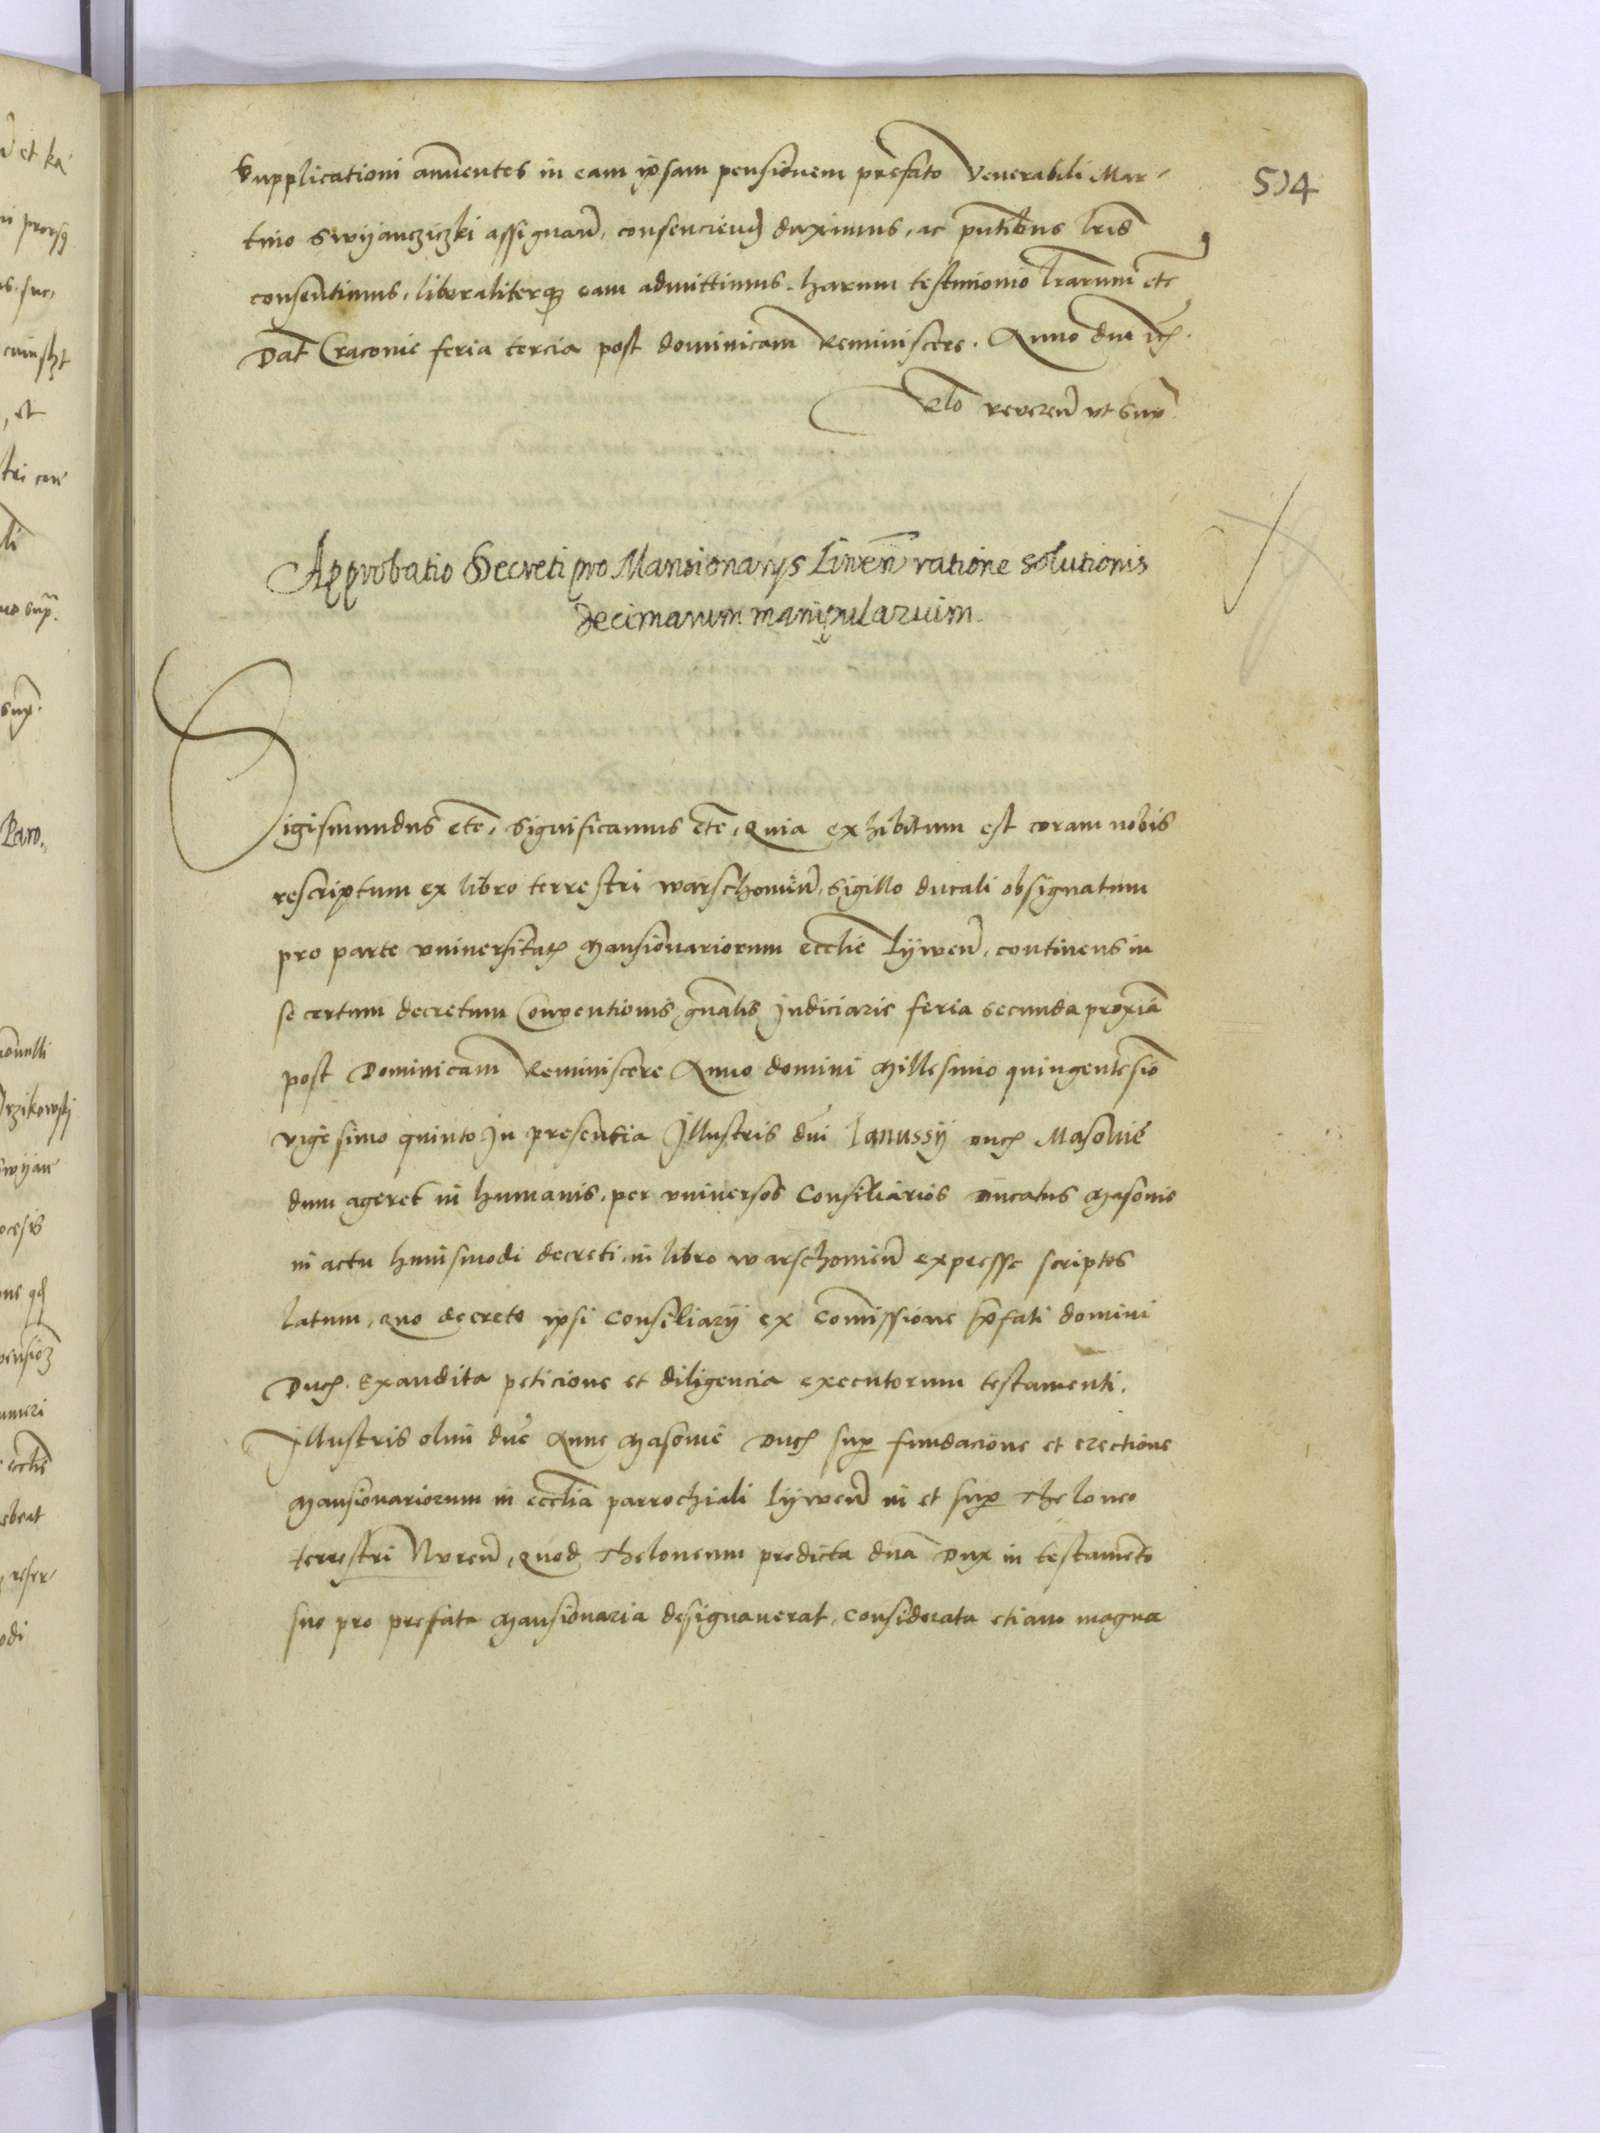 514
Supplicationi annuentes in eam ipsam pensionem prefato Venerabili Mar-
tino Swijancziczki assignan̄, consenciend duximus, ac pn̄tibus lr̄is
consentimus, liberaliterq; eam admittimus. harum testimonio lr̄arum etc̄
Dat̄ Cracovie feria tercia post dominicam Reminiscere. Anno dn̄i
Rlo reveren̄ ut sup̄
Approbatio Decreti pro Mansionarijs Liwen̄ ratione solutionis
decimarum manipularuim.
Sigismundus etc̄, Significamus etc̄, Quia exhibitum est coram nobis
rescriptum ex libro terrestri warschovien̄, sigillo ducali obsignatum
pro parte vniversitatis Mansionariorum eccl̄ie Lijwen̄, continens in
se certum decretum Conventionis gn̄alis Judiciarie feria secunda proxīa
post Dominicam Reminiscere Anno domini Millesimo quingentesīo
vigesimo quinto In presentia Illustris dn̄i Ianussij ducis Masovie
dum ageret in humanis, per vniversos Consiliarios Ducatus Masovie
in actu huiusmodi decreti in libro warschovien̄ expresse scriptos
latum, quo decreto ipsi Consiliarij ex Com̄issione p̄fati domini
Ducis. Exaudita peticione et diligencia executorum testamenti.
Illustris olim dn̄e Anne Masovie Ducis sup̄ fundacione et erectione
Mansionariorum in eccl̄ia parrochiali Lijwen̄ in et sup̄ theloneo
terrestri Nuren̄, quod theloneum predicta dn̄a Dux in testamento
suo pro prefata Mansionaria designaverat, Considerata etiam magna